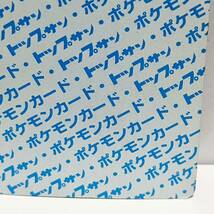 トップサン・
ポケモンカード・
トップサン・ポケモンカード・
ポケモンカード・トップサン・
トップサン・ポケモンカード・
ポケモンカード・トップサン・
トップサン・ポケモンカード
ポケモンカード